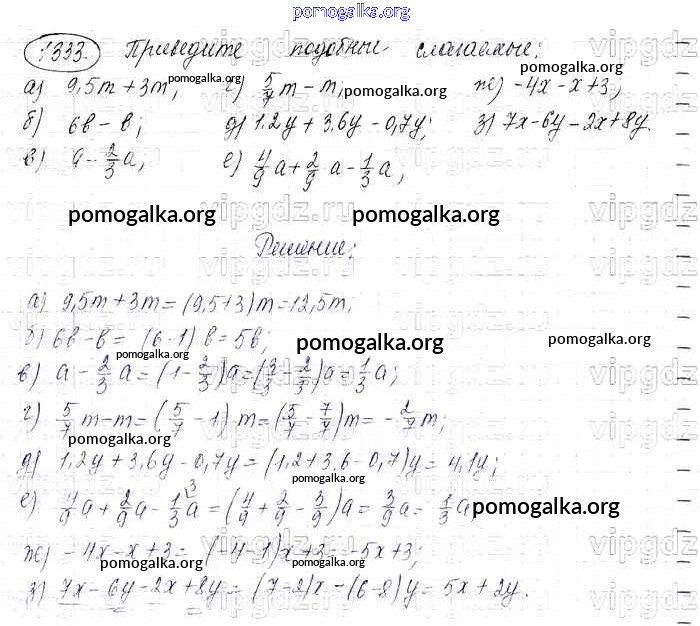 pomogalka.org
1333. Приведите подобные слагаемые:
а) 9,5m + 3m; г) 5/7 m - m; ж) -4x - x + 3;
б) 6в - в; д) 1,2y + 3,6y - 0,7y; з) 7x - 6y - 2x + 8y.
в) а - 2/3 а; е) 4/9 а + 2/9 а - 1/3 а;
pomogalka.org pomogalka.org pomogalka.org
pomogalka.org pomogalka.org
Решение:
а) 9,5m + 3m = (9,5 + 3)m = 12,5m;
б) 6в - в = (6 - 1)в = 5в;
pomogalka.org pomogalka.org pomogalka.org
в) а - 2/3 а = (1 - 2/3)а = (3/3 - 2/3)а = 1/3 а;
г) 5/7 m - m = (5/7 - 1)m = (5/7 - 7/7)m = -2/7 m;
pomogalka.org
д) 1,2y + 3,6y - 0,7y = (1,2 + 3,6 - 0,7)y = 4,1y;
е) 4/9 а + 2/9 а - 1/3 а = (4/9 + 2/9 - 3/9)а = 3/9 а = 1/3 а
pomogalka.org
ж) -4x - x + 3 = (-4 - 1)x + 3 = -5x + 3;
pomogalka.org pomogalka.org
з) 7x - 6y - 2x + 8y = (7 - 2)x - (6 - 8)y = 5x + 2y.